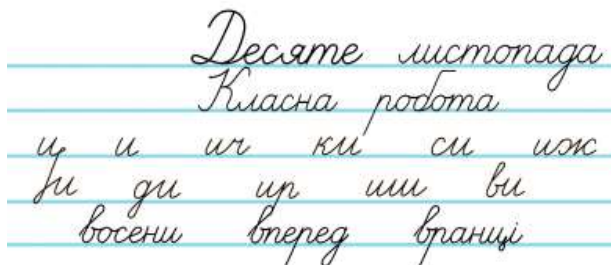 Десяте листопада
Класна робота
и и ич ки си иж
ди ир ши ви
восени вперед вранці